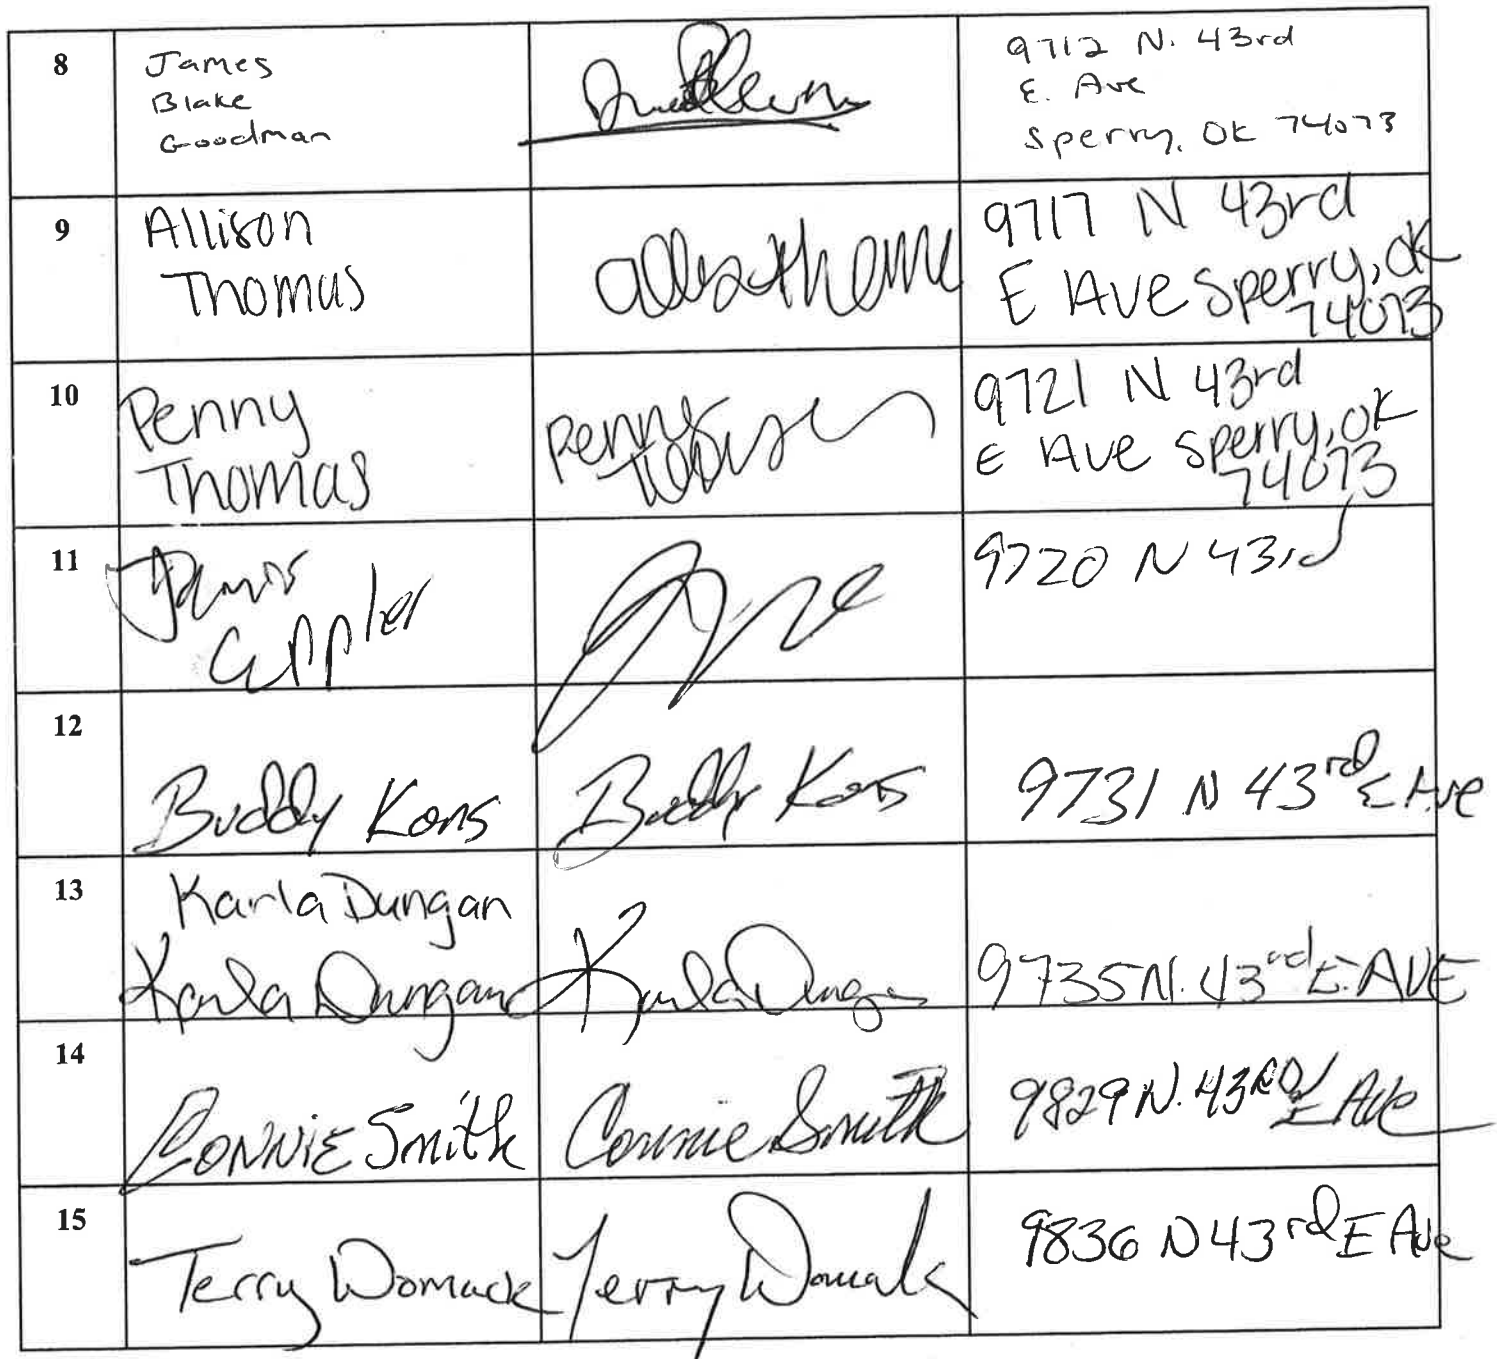 8
James
Blake
Goodman
9712 N. 43rd
E. Ave
Sperry, OK 74073
9
Allison
Thomas
9717 N 43rd
E Ave Sperry, OK
74073
10
Penny
Thomas
Penny
9721 N 43rd
E Ave Sperry, OK
74073
11
9720 N 43rd
12
Buddy Kons
Buddy Kons
9731 N 43rd E Ave
13
Karla Dungan
Karla Dungan
Karla Dungan
9735 N. 43rd E. AVE
14
CONNIE Smith
Connie Smith
9829 N. 43RD E Ave
15
Terry Womack
Terry Womack
9836 N 43rd E Ave